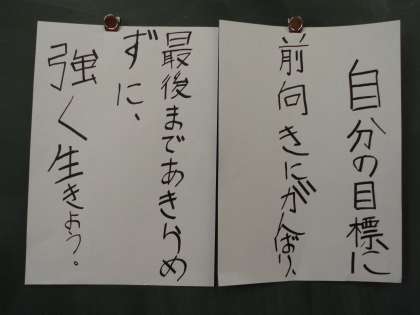 自分の目標に
前向きにがんばり、
最後まであきらめ
ずに、
強く生きよう。